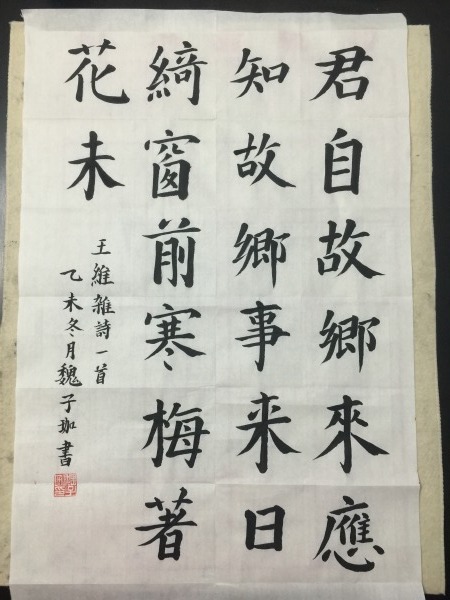 君自故鄉來應
知故鄉事来日
綺窗前寒梅著
花未
王維雜詩一首
乙未冬月魏子珈書